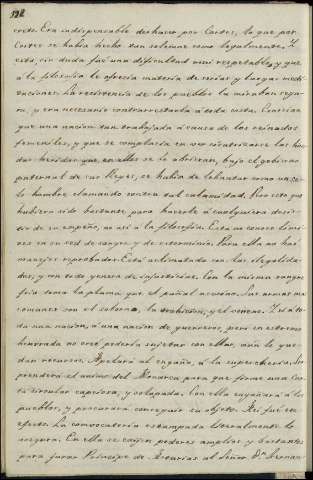 creto. Era indispensable deshacer por Cortes, lo que por
Cortes se habia hecho tan solemne como legalmente. Y
esta, sin duda fué una dificultad muy respetable, y que
á la filosofia le ofrecia materia de serias y largas medi-
taciones. La resistencia de los pueblos la miraban segu-
ra, y era necesario contrarrestarla á toda costa. Conocian
que una nacion tan trabajada á causa de los reinados
femeniles, y que se complacia en ver cicatrizarse las hon-
das heridas que en ellos se le abrieran, bajo el gobierno
paternal de sus Reyes, se habia de lebantar como un so-
lo hombre clamando contra tal calamidad. Pero esto que
hubiera sido bastante para hacerle á cualquiera desis-
tir de su empeño, no asi á la filosofia. Esta no conoce limi-
tes en su sed de sangre y de esterminio. Para ella no hai
manejos reprobados. Está aclimatada con las ilegalida-
des, y con todo genero de injusticias. Con la misma sangre
fria toma la pluma, que el puñal asesino. Sus armas mas
comunes son el soborno, la traicion, y el veneno. Y si á to-
da una nacion, á una nacion de guerreros, pero en estremo
honrada no cree poderla sujetar con ellas, aun le que-
dan recursos. Apelará al engaño, á la supercheria. Sor-
prenderá el animo del Monarca para que firme una Car-
ta circular capciosa, y solapada. Con ella engañará á los
pueblos, y procurará conseguir su objeto. Asi fué en
efecto. La convocatoria estampada literalmente lo
asegura. En ella se exijen poderes amplios y bastantes
para jurar Principe de Asturias al Señor Dn. Fernan-